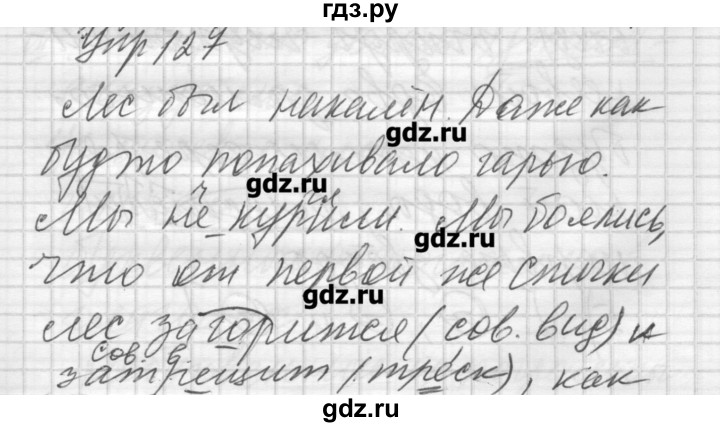 гдз.ру
Упр 127
Лес был накалён. Даже как
gdz.ru
будто попахивало гарью.
gdz.ru
ч гл
Мы не курили. Мы боялись,
gdz.ru
что от первой же спички
gdz.ru
лес загорится (сов. вид) и
сов. в
затрещит (треск), как
gdz.ru